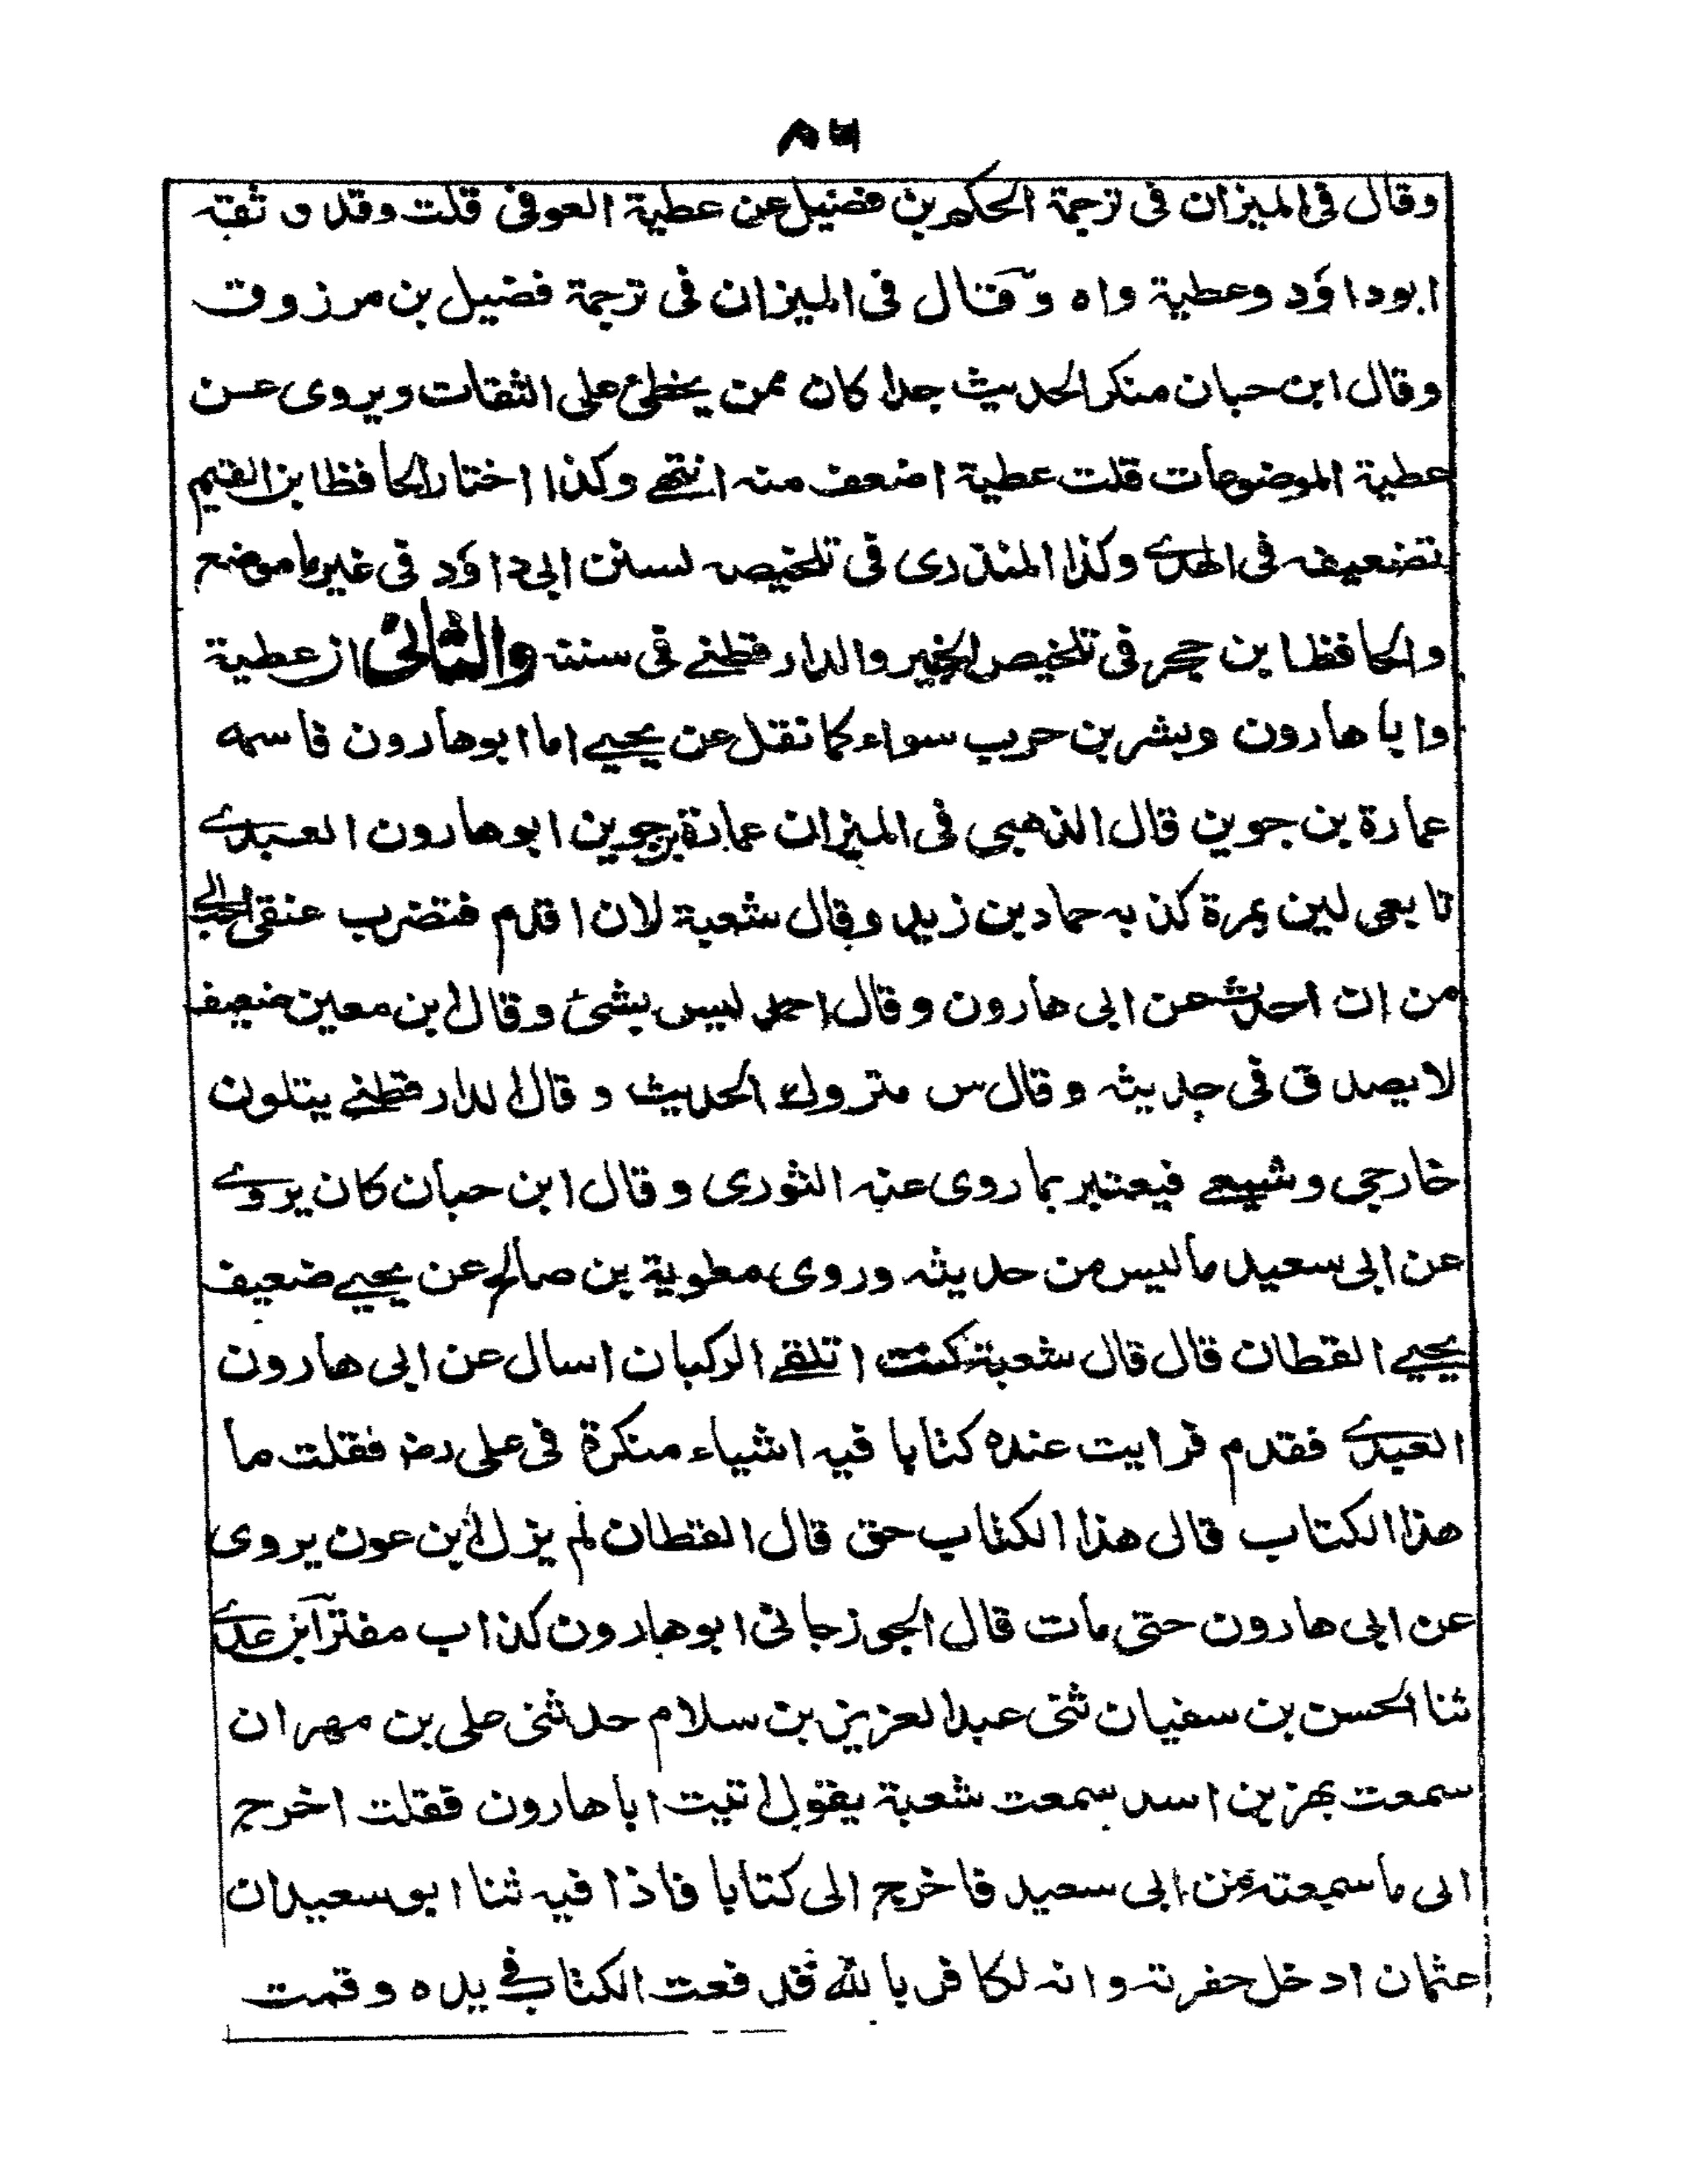 وقال فى الميزان فى ترجمة الحكم بن فضيل عن عطية العوفى قلت وقد وثقه
ابوداؤد وعطية واه وقال فى الميزان فى ترجمة فضيل بن مرزوق
وقال ابن حبان منكر الحديث جدا كان ممن يخطئ على الثقات ويروى عن
عطية الموضوعات قلت عطية اضعف منه انتهے وكذا اختار الحافظ ابن القيم
تضعيفه فى الهدے وكذا المنذرى فى تلخيصه لسنن ابى داؤد فى غير ما موضع
والحافظ ابن حجر فى تلخيص الحبير والدارقطنے فى سننه والثانى ان عطية
وابا هارون وبشر بن حرب سواء كما نقل عن يحيے اما ابوهارون فاسمه
عمارة بن جوين قال الذهبى فى الميزان عمارة بن جوين ابو هارون العبدے
تابعى لين بمرة كذبه حماد بن زيد وقال شعبة لان اقدم فتضرب عنقى احب الے
من ان احدث عن ابى هارون وقال احمد ليس بشئ وقال ابن معين ضعيف
لا يصدق فى حديثه وقال س متروك الحديث وقال الدارقطنے يتلون
خارجى وشيعے فيعتبر بما روى عنه الثورى وقال ابن حبان كان يروے
عن ابى سعيد ما ليس من حديثه وروى معوية بن صالح عن يحيے ضعيف
يحيے القطان قال قال شعبة كنت اتلقے الركبان اسال عن ابى هارون
العبدے فقدم فرايت عنده كتابا فيه اشياء منكرة فى على رض فقلت ما
هذا الكتاب قال هذا الكتاب حق قال القطان لم يزل ابن عون يروى
عن ابى هارون حتى مات قال الجوزجانى ابو هارون كذاب مفتر ابن عدے
ثنا الحسن بن سفيان ثنى عبد العزيز بن سلام حدثنى على بن مهران
سمعت بهز بن اسد سمعت شعبة يقول اتيت ابا هارون فقلت اخرج
الى ما سمعته من ابى سعيد فاخرج الى كتابا فاذا فيه ثنا ابو سعيد ان
عثمان ادخل حفرته وانه لكافر بالله فدفعت الكتاب فے يده وقمت